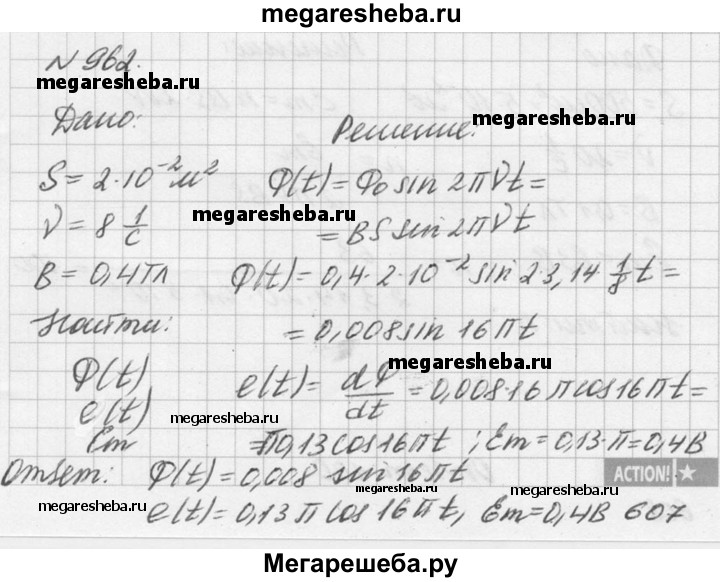 megaresheba.ru
N 962.
megaresheba.ru
Дано:
Решение:
megaresheba.ru
S = 2·10⁻² м²
Φ(t) = Φ₀ sin 2πνt =
ν = 8 1/c
megaresheba.ru
= BS sin 2πνt
B = 0,4 Тл
Φ(t) = 0,4·2·10⁻² sin 2·3,14·1/8 t =
Найти:
= 0,008 sin 16πt
megaresheba.ru
Φ(t)
e(t) = dΦ/dt = 0,008·16π cos 16πt =
e(t)
megaresheba.ru
Em
= π0,13 cos 16πt ; Em = 0,13·π = 0,4 В
Ответ: Φ(t) = 0,008 sin 16πt
ACTION!
megaresheba.ru
megaresheba.ru
megaresheba.ru
e(t) = 0,13π cos 16πt, Em = 0,4 В 607
Мегарешеба.ру